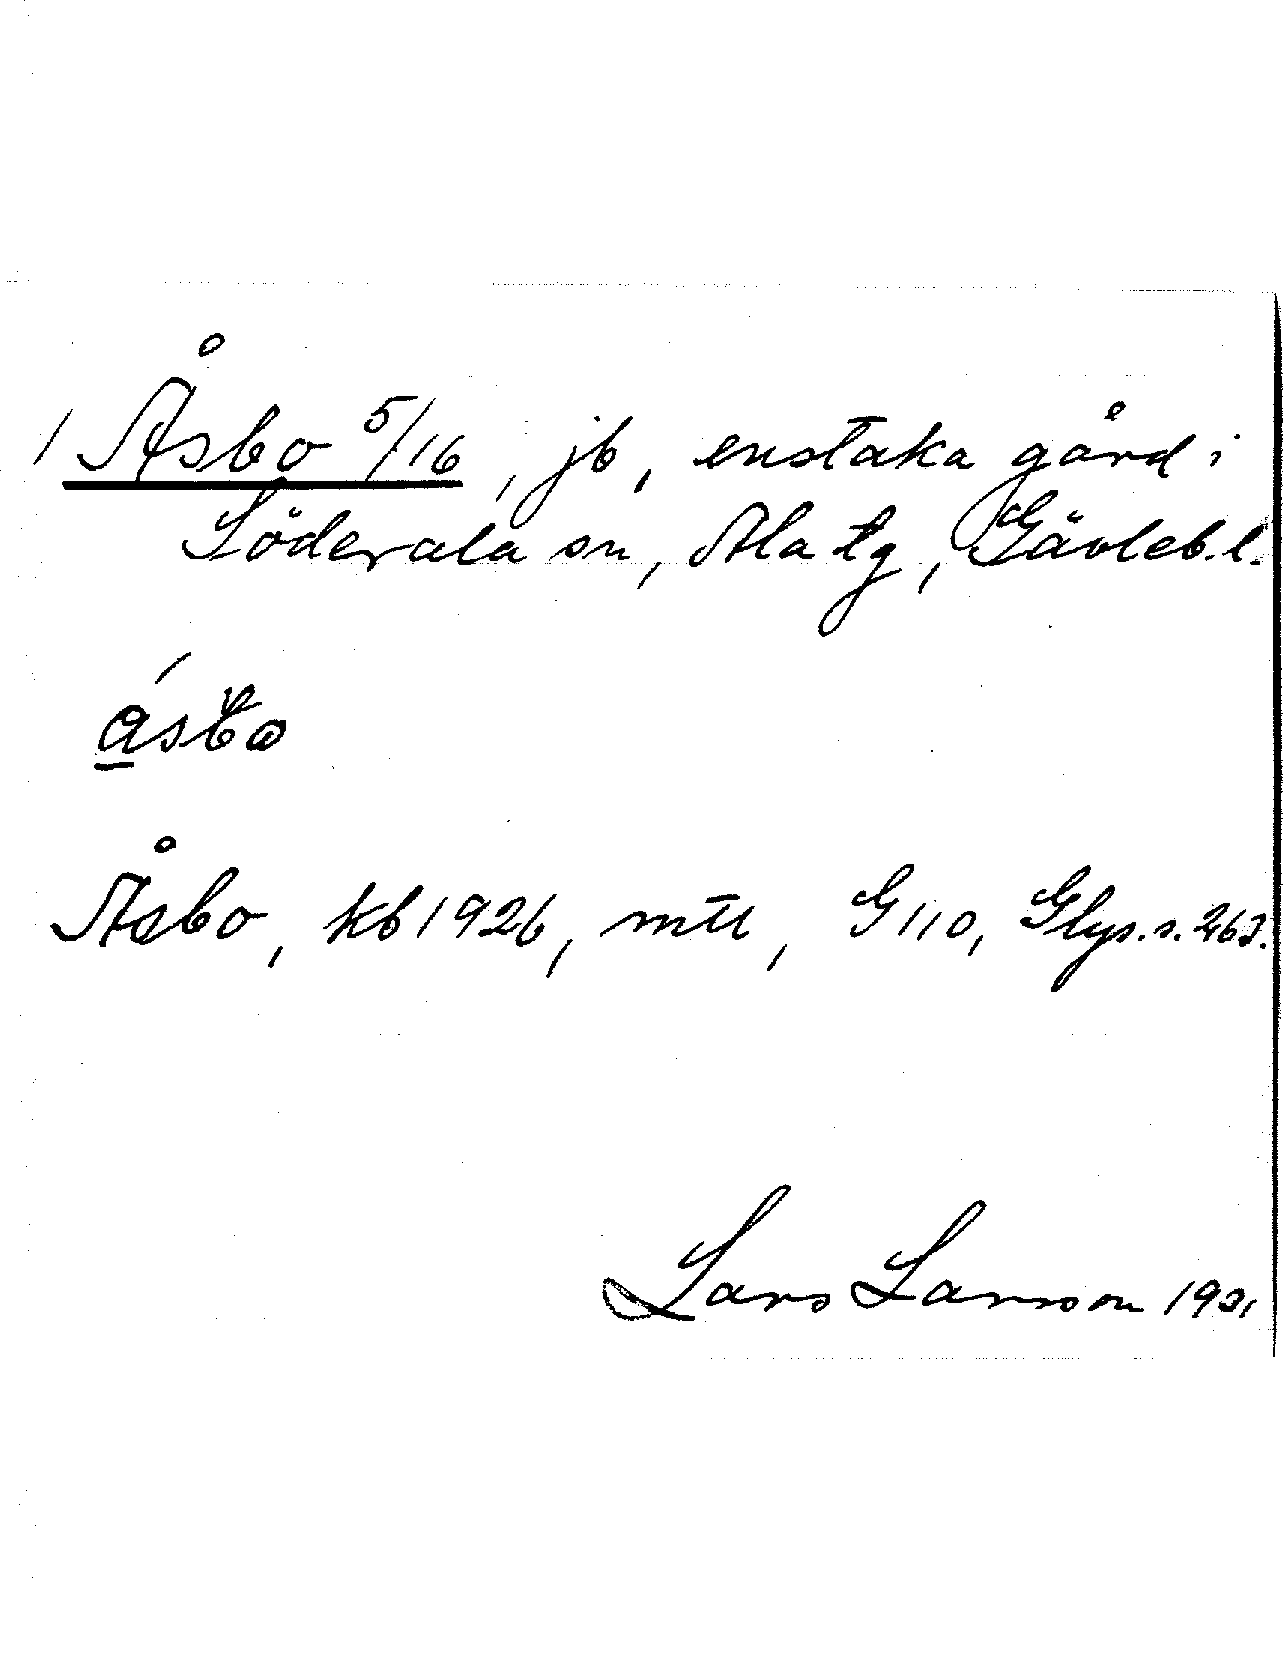 1 Åsbo 5/16, jb, enstaka gård i
Söderala sn, Ala tg, Gävleb.l.
Åsbo, kb 1926, mtl, G 110, Glys. s. 263.
Lars Larsson 1931